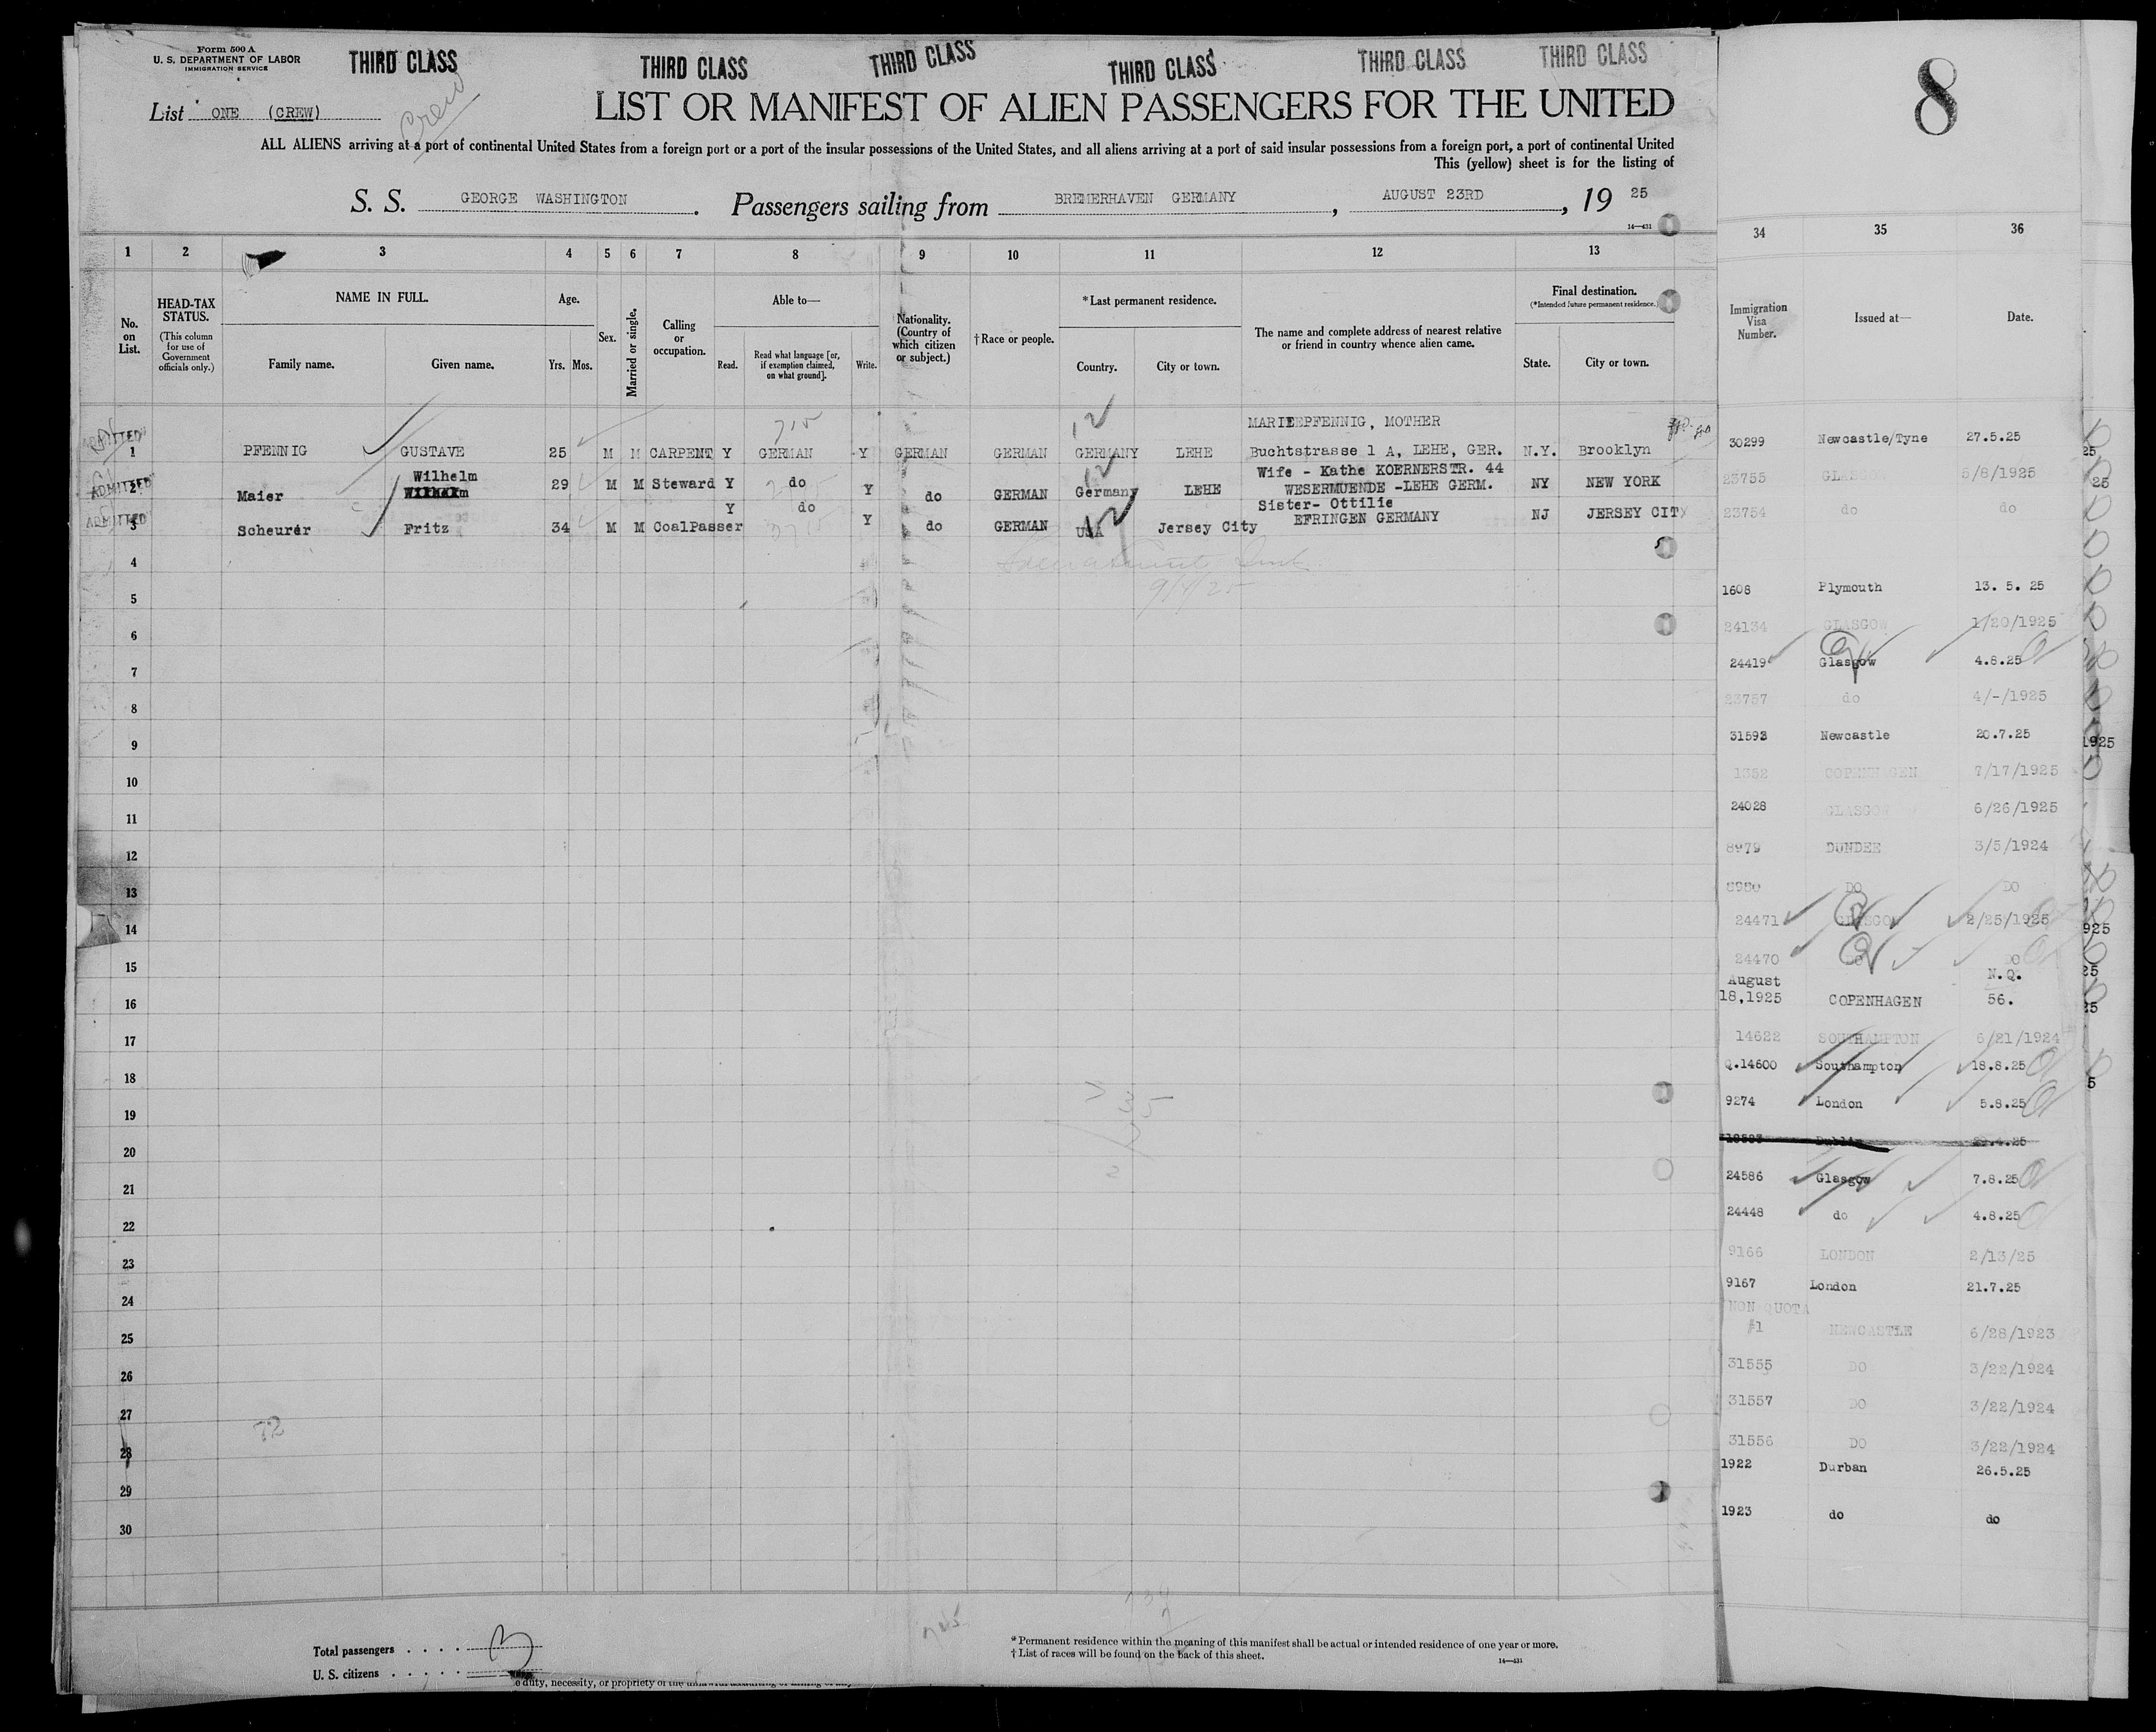 Form 500 A
U. S. DEPARTMENT OF LABOR
IMMIGRATION SERVICE
THIRD CLASS THIRD CLASS THIRD CLASS THIRD CLASS THIRD CLASS THIRD CLASS
8
List ONE (CREW)
Crew
LIST OR MANIFEST OF ALIEN PASSENGERS FOR THE UNITED
ALL ALIENS arriving at a port of continental United States from a foreign port or a port of the insular possessions of the United States, and all aliens arriving at a port of said insular possessions from a foreign port, a port of continental United
This (yellow) sheet is for the listing of
S. S. GEORGE WASHINGTON . Passengers sailing from BREMERHAVEN GERMANY , AUGUST 23RD , 19 25
14—431
1 2 3 4 5 6 7 8 9 10 11 12 13
No. on List.
HEAD-TAX STATUS.
(This column for use of Government officials only.)
NAME IN FULL.
Family name. Given name.
Age.
Yrs. Mos.
Sex.
Married or single.
Calling or occupation.
Able to—
Read.
Read what language [or, if exemption claimed, on what ground].
Write.
Nationality. (Country of which citizen or subject.)
†Race or people.
*Last permanent residence.
Country. City or town.
The name and complete address of nearest relative or friend in country whence alien came.
Final destination.
(*Intended future permanent residence.)
State. City or town.
MARIE PFENNIG, MOTHER
ADMITTED 1 PFENNIG GUSTAVE 25 M M CARPENT Y GERMAN Y GERMAN GERMAN GERMANY LEHE Buchtstrasse 1 A, LEHE, GER. N.Y. Brooklyn
Wilhelm Wife - Kathe KOERNERSTR. 44
ADMITTED 2 Maier 29 M M Steward Y do Y do GERMAN Germany LEHE WESERMUENDE -LEHE GERM. NY NEW YORK
Sister- Ottilie
ADMITTED 3 Scheurer Fritz 34 M M CoalPasser Y do Y do GERMAN USA Jersey City EFRINGEN GERMANY NJ JERSEY CITY
4
9/4/25
5
6
7
8
9
10
11
12
13
14
15
16
17
18
19
20
21
22
23
24
25
26
27
72
28
29
30
Total passengers . . . . 3
U. S. citizens . . . . .
* Permanent residence within the meaning of this manifest shall be actual or intended residence of one year or more.
† List of races will be found on the back of this sheet.
14—431
e duty, necessity, or propriety of the
34 35 36
Immigration Visa Number. Issued at— Date.
30299 Newcastle/Tyne 27.5.25
23755 GLASGOW 5/8/1925
23754 do do
1608 Plymouth 13. 5. 25
24134 GLASGOW 1/20/1925
24419 Glasgow 4.8.25
23757 do 4/-/1925
31593 Newcastle 20.7.25
1352 COPENHAGEN 7/17/1925
24028 GLASGOW 6/26/1925
8979 DUNDEE 3/5/1924
8980 DO DO
24471 GLASGOW 2/25/1925
24470 DO DO
August N.Q.
18,1925 COPENHAGEN 56.
14622 SOUTHAMPTON 6/21/1924
Q.14600 Southampton 18.8.25
9274 London 5.8.25
Dublin
24586 Glasgow 7.8.25
24448 do 4.8.25
9166 LONDON 2/13/25
9167 London 21.7.25
NON QUOTA
#1 NEWCASTLE 6/28/1923
31555 DO 3/22/1924
31557 DO 3/22/1924
31556 DO 3/22/1924
1922 Durban 26.5.25
1923 do do